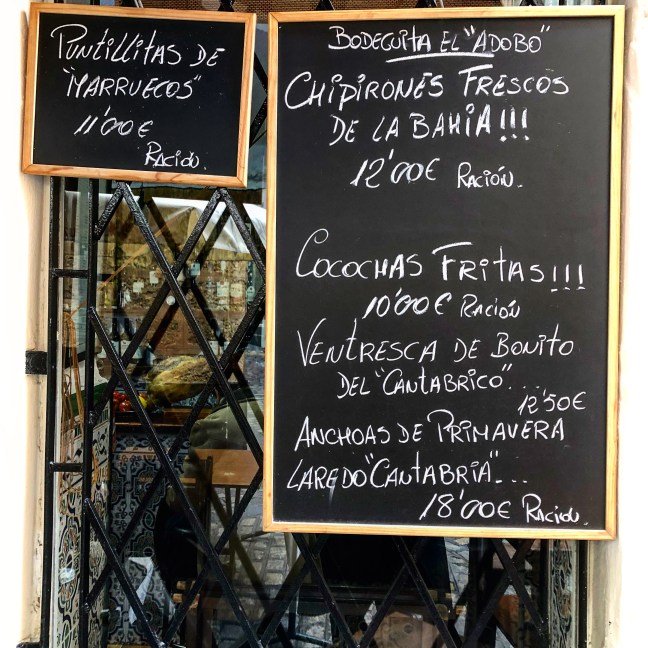 PUNTILLITAS DE
"MARRUECOS"
11'00€
RACIÓN.
BODEGUITA EL "ADOBO"
CHIPIRONES FRESCOS
DE LA BAHIA!!!
12'00€ RACIÓN.
COCOCHAS FRITAS!!!
10'00€ RACIÓN
VENTRESCA DE BONITO
DEL "CANTABRICO"...
12'50€
ANCHOAS DE PRIMAVERA
LAREDO "CANTABRIA"...
18'00€ RACIÓN.